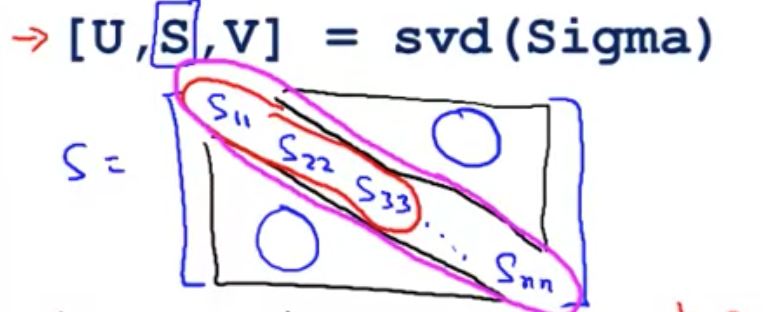 → [U,S,V] = svd(Sigma)
S = [S11 0
S22
S33
0 ....
Snn]